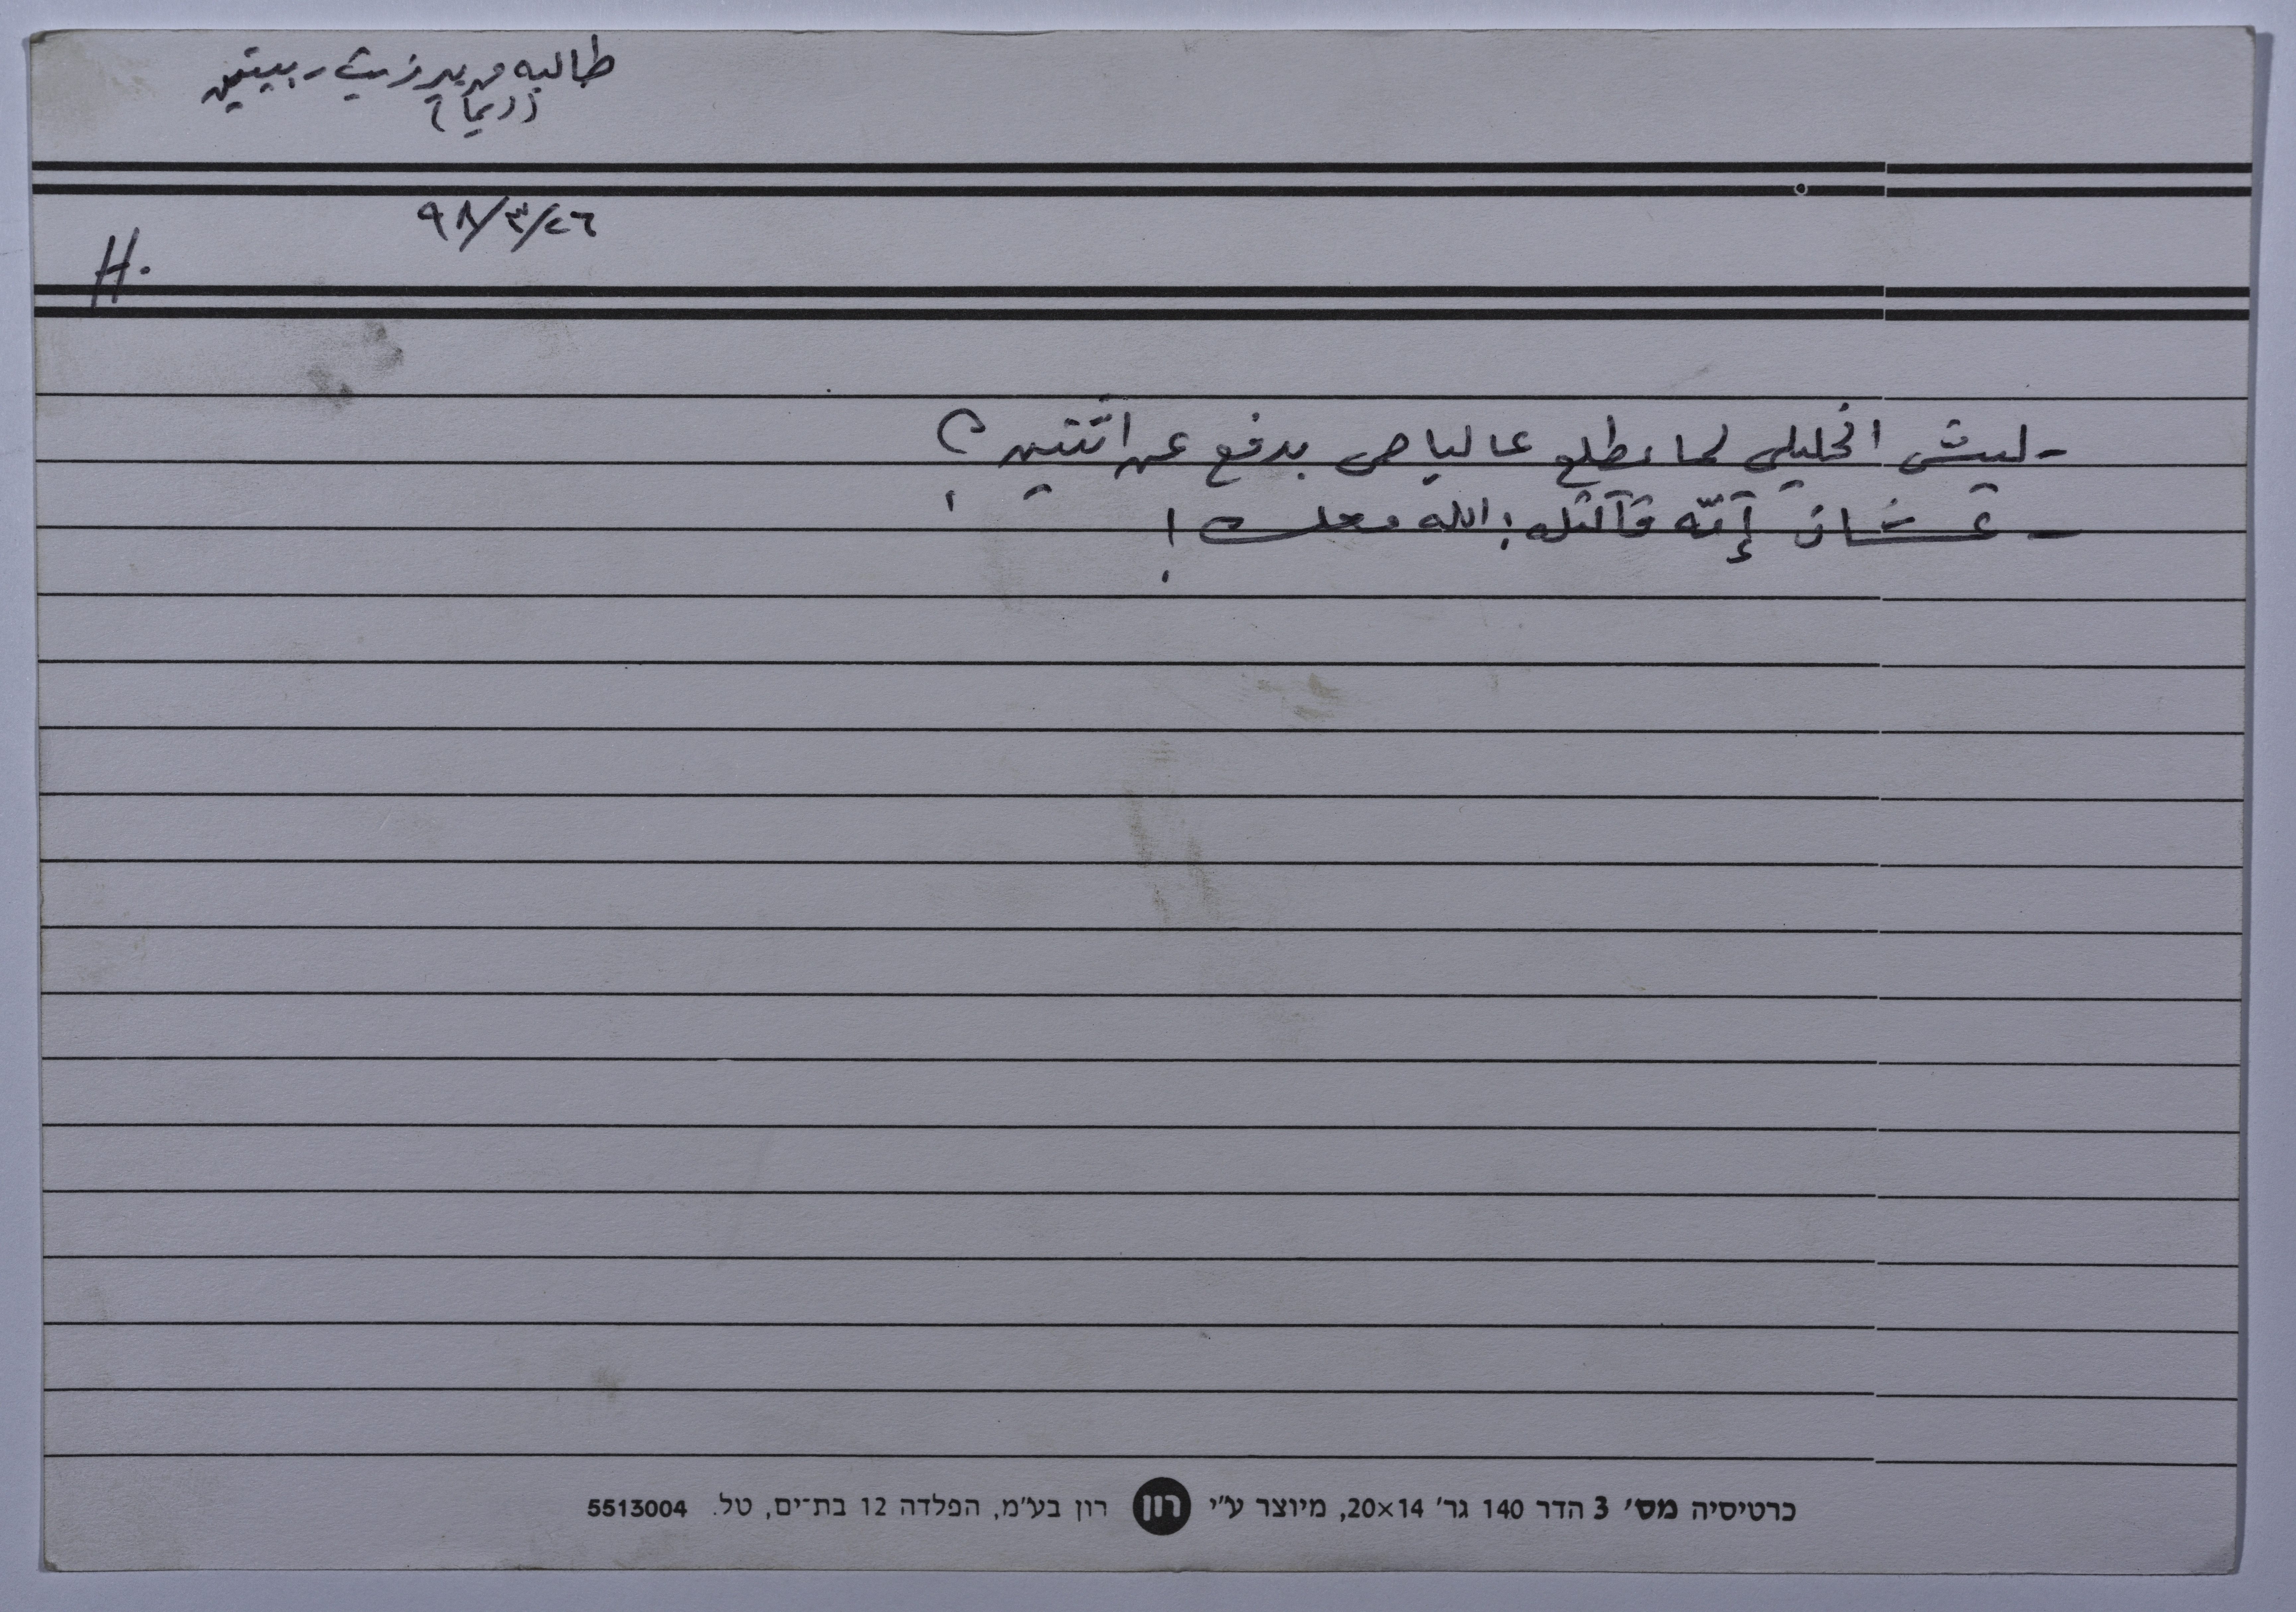 طالبه من بير زيت - بيتين
(ريما)
٩٨/٣/٢٦
H.
- ليش الخليلي لما بطلع عالباص بدفع عن اثنتين؟
- عشان إمّه قالتله: الله معك!
כרטיסיה מס׳ 3 הדר 140 גר׳ 20×14, מיוצר ע״י רון רון בע״מ, הפלדה 12 בת־ים, טל. 5513004